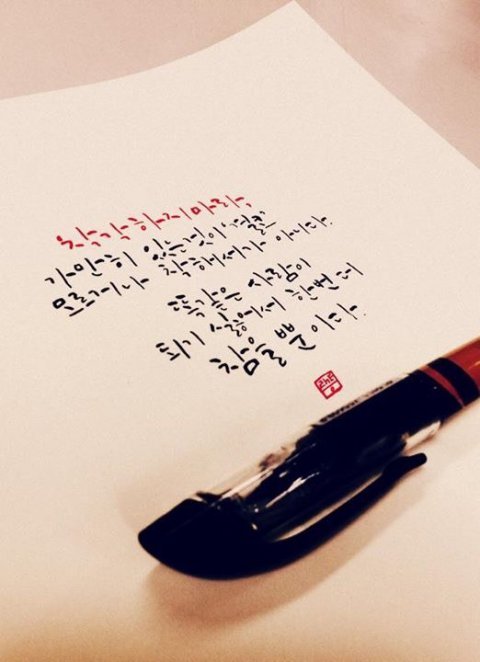 착각하지마라,
가만히 있는것이 결코
모르거나 착해서가 아니다.
똑같은 사람이
되기 싫어서 한번 더
참을 뿐이다.